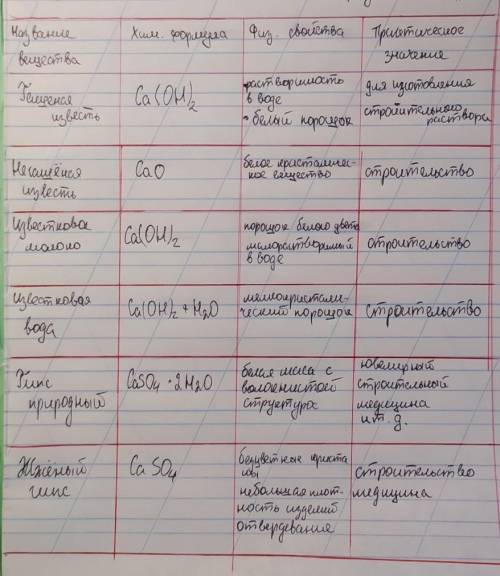 Название вещества
Хим. формула
Физ. свойства
Практическое значение
Гашеная известь
Ca(OH)2
• растворимость в воде
• белый порошок
для изготовления строительного раствора
Негашёная известь
CaO
белое кристаличес-
кое вещество
строительство
Известковое молоко
Ca(OH)2
порошок белого цвета
малорастворимый
в воде
строительство
Известковая вода
Ca(OH)2 + H2O
мелкокристали-
ческий порошок
строительство
Гипс природный
CaSO4 • 2H2O
белая масса с
волокнистой
структурой
ювелирный
строительный
медицина
и т. д.
Жжёный гипс
CaSO4
бецветные криста
лы
небольшая плот-
ность изделий
отвердевания
строительство
медицина